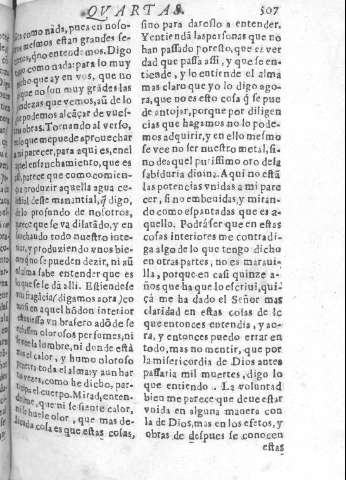 QUARTAS 507
como nada, pues en noso-
mesmos estan grandes se-
q̃ no entendemos. Digo
como nada: para lo muy
cho que ay en vos, que no
que no son muy grãdes las
ndezas que vemos, aũ de lo
podemos alcãçar de vues-
obras. Tornando al verso,
lo que me puede aprouechar
mi parecer, para aqui es, en el
uel ensanchamiento, que es
parece que como comien-
produzir aquella agua ce-
tial deste manantial, q̃ digo,
lo profundo de nosotros,
parece que se va dilatãdo, y en
sanchando todo nuestro inte-
rior, y produziendo vnos bie-
que no se pueden dezir, ni aũ
alma sabe entender que es
lo que se le dà alli. Estiendese
fragãcia (digamos aora) co
en aquel hõdon interior
vn brasero adõde se
olorosos perfumes, ni
la lumbre, ni donde està
el calor, y humo oloroso
toda el alma y aun har
como he dicho, par-
el cuerpo. Mirad, enten-
que ni se siente calor,
ni se huele olor, que mas de-
licada cosa es que estas cosas,
sino para daroslo a entender.
Y entiendã las personas que no
han passado por esto, que es ver
dad que passa assi, y que se en-
tiende, y lo entiende el alma
mas claro que yo lo digo ago-
ra, que no es esto cosa q̃ se pue
de antojar, porque por diligen
cias que hagamos no lo pode-
mos adquirir, y en ello mesmo
se vee no ser nuestro metal, si-
no de aquel purissimo oro de la
sabiduria diuina. Aqui no està
las potencias vnidas a mi pare
cer, sino embeuidas, y miran-
do como espantadas que es a-
quello. Podrà ser que en estas
cosas interiores me contradi-
ga algo de lo que tengo dicho
en otras partes, no es maraui-
lla, porque en casi quinze a-
ños que ha que lo escriui, qui-
çà me ha dado el Señor mas
claridad en estas cosas de lo
que entonces entendia, y ao-
ra, y entonces puedo errar en
todo, mas no mentir, que por
la misericordia de Dios antes
passaria mil muertes, digo lo
que entiendo. La voluntad
bien me parece que deue estar
vnida en alguna manera con
la de Dios, mas en los efetos, y
obras de despues se conocen
estas